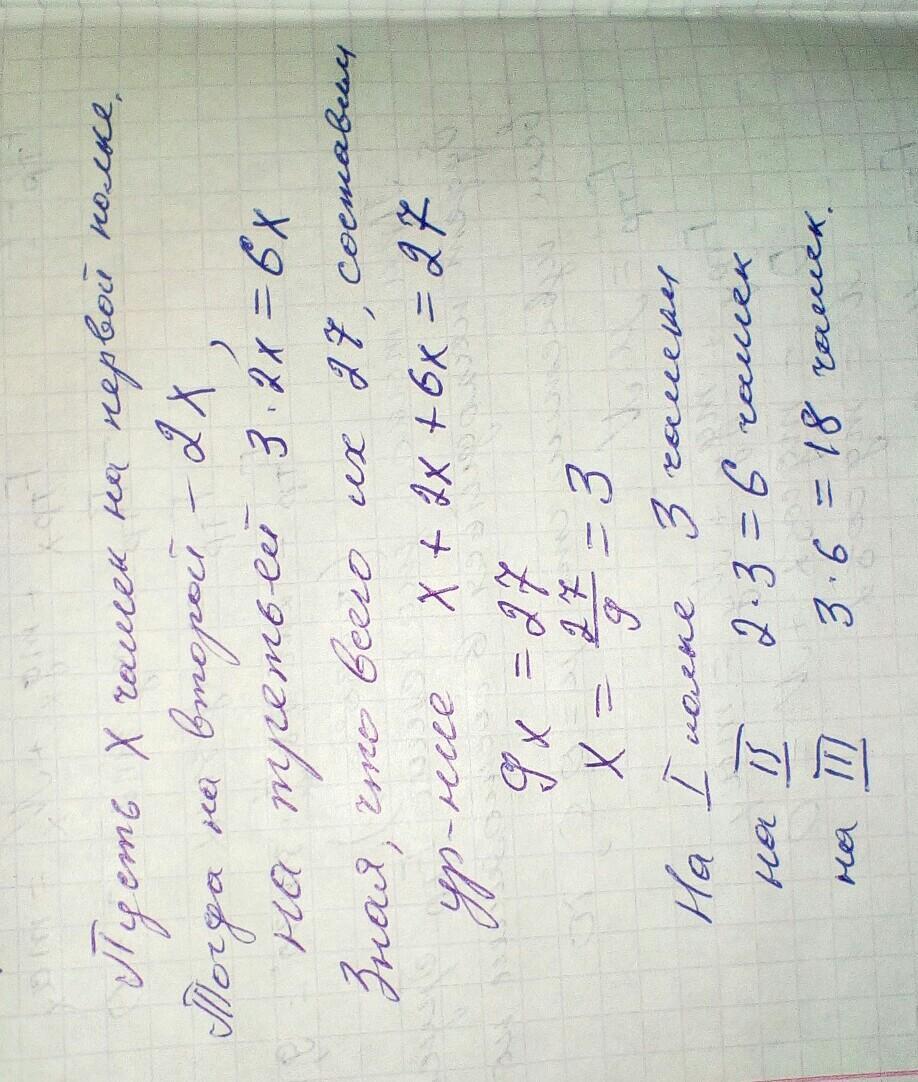 Пусть х чашек на первой полке.
Тогда на второй - 2х,
на третьей 3·2х=6х
Зная, что всего их 27, составим
ур-ние х+2х+6х=27
9х=27
х=27/9=3
На I полке 3 чашки
на II 2·3=6 чашек
на III 3·6=18 чашек.